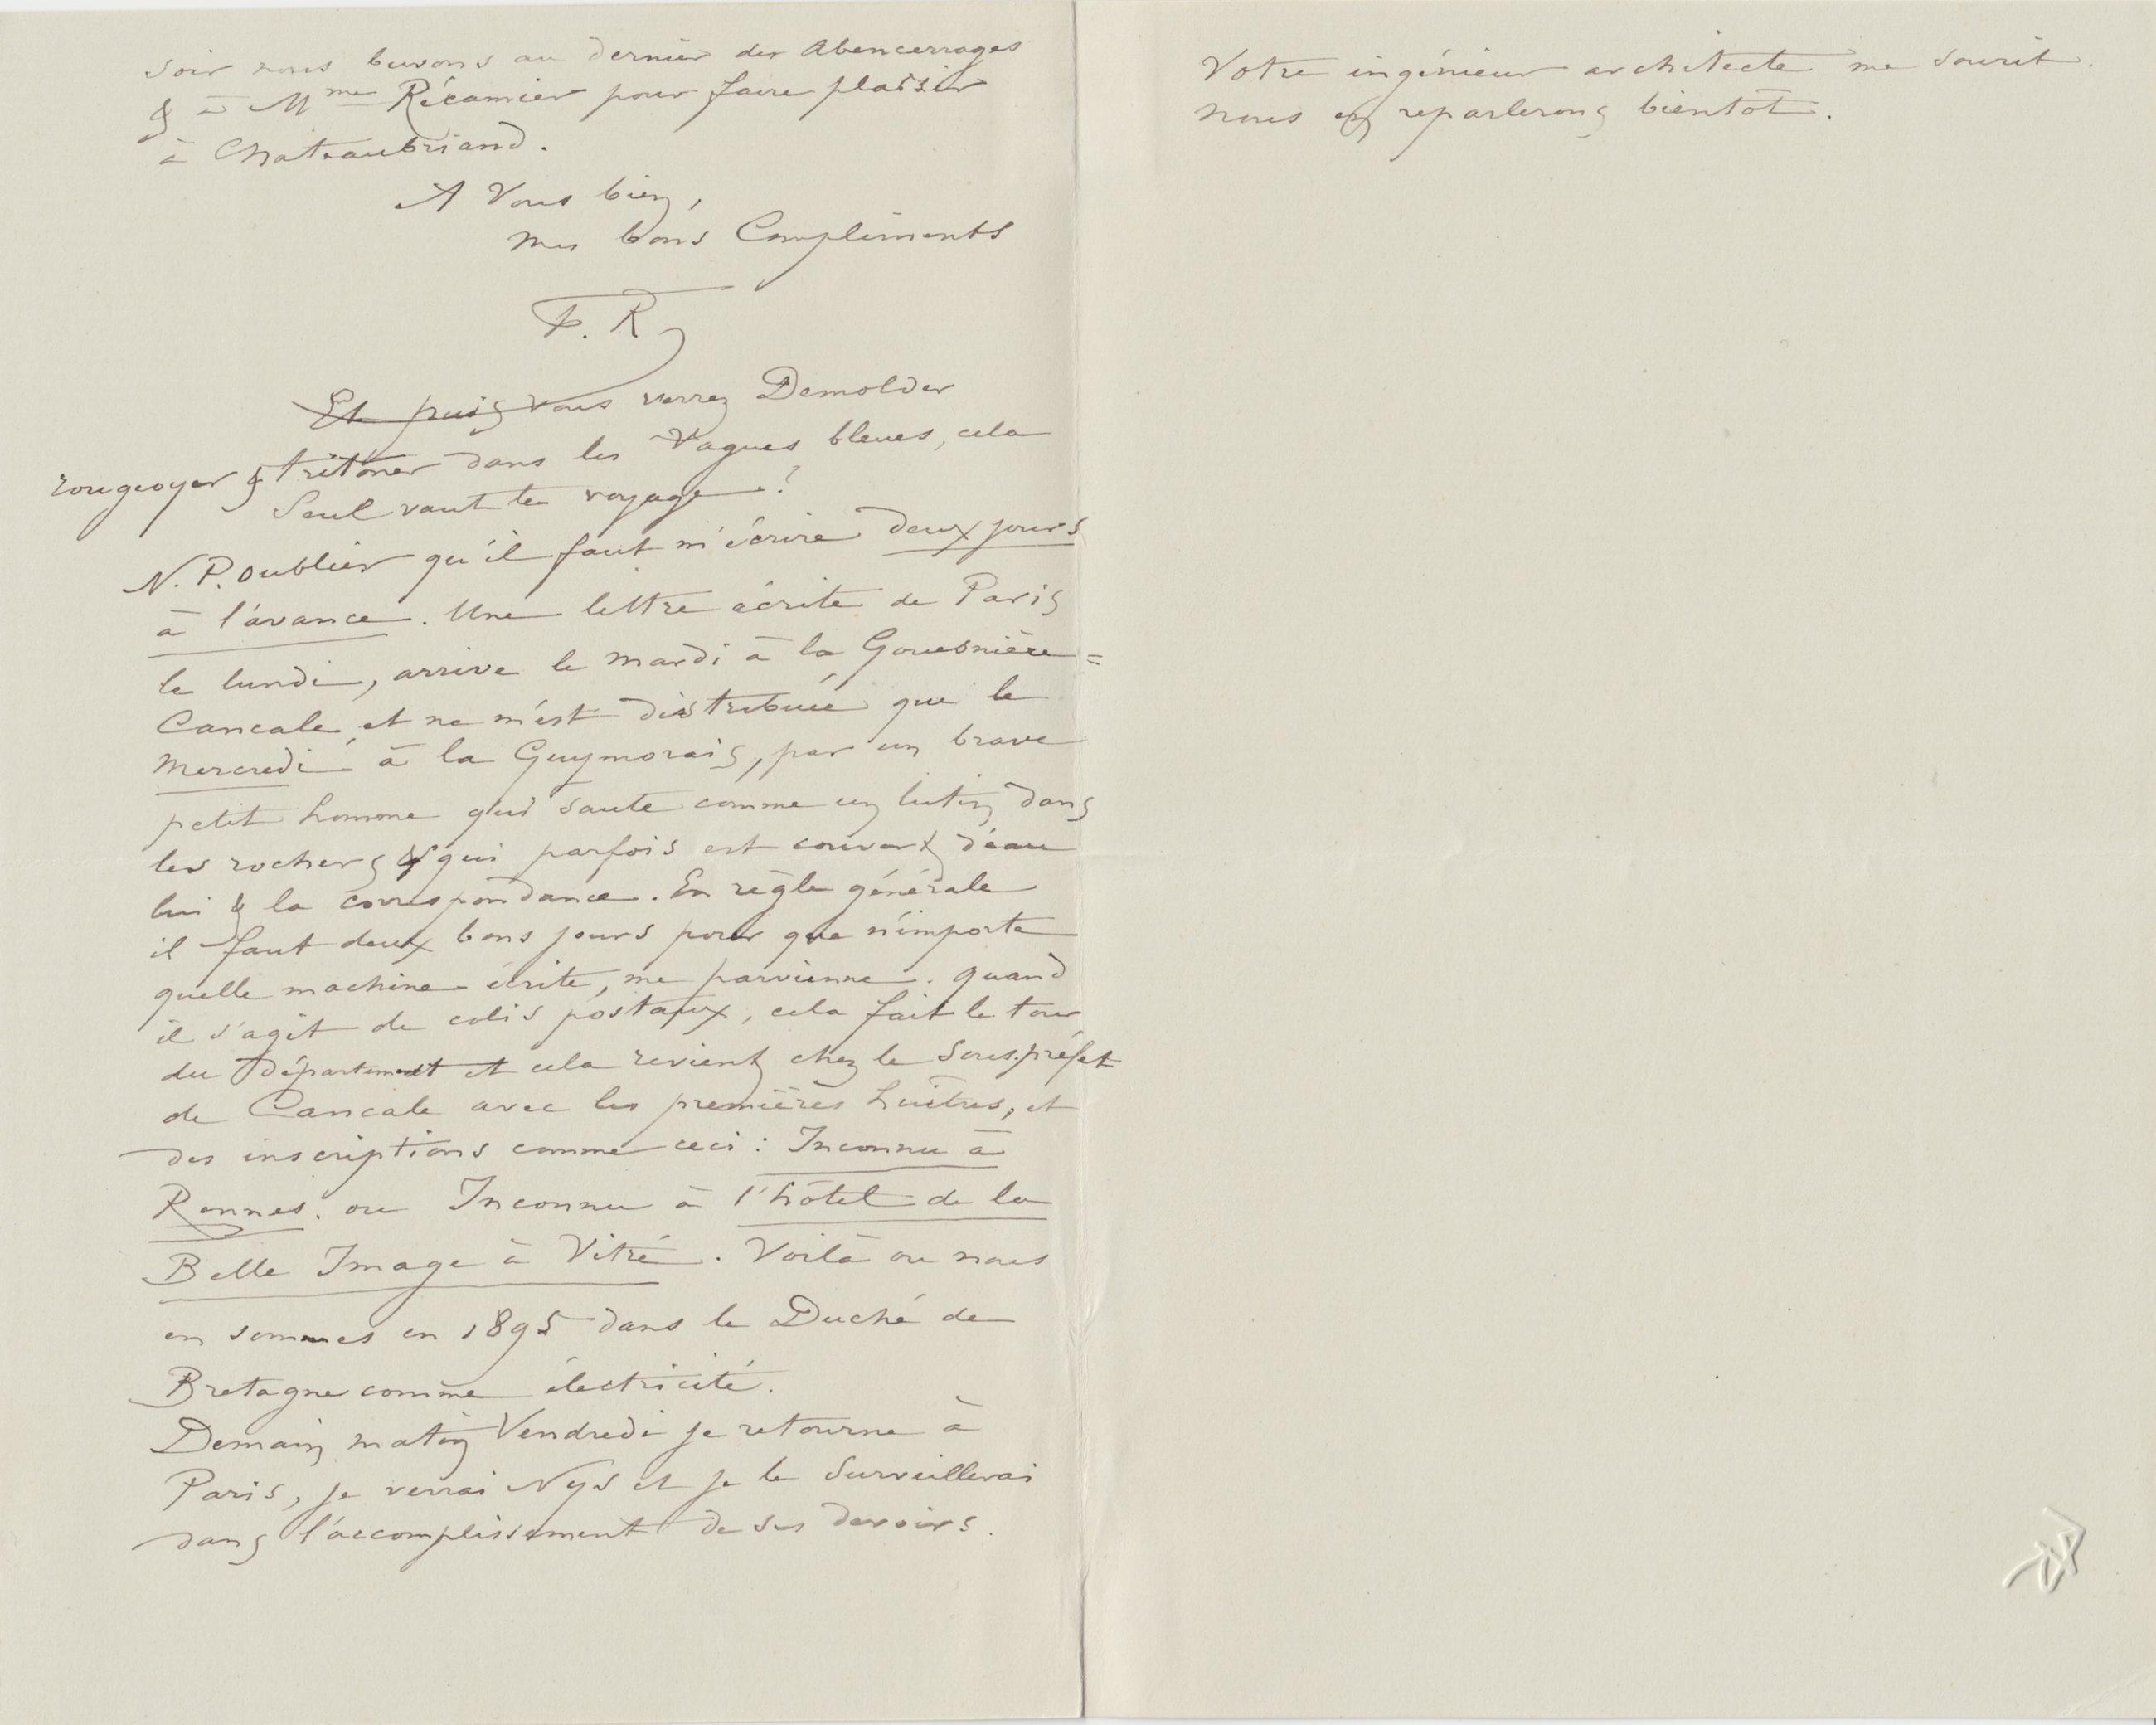 soir nous buvons au dernier des Abencerrages
& à Mme Récamier pour faire plaisir
à Chateaubriand.
A Vous bien,
mes bons Compliments
F. R
Et puis vous verrez Demolder
rougeoyer & tritoner dans les Vagues bleues, cela
seul vaut le voyage !
N. P. oublier qu'il faut m'écrire deux jours
à l'avance. Une lettre écrite de Paris
le lundi, arrive le mardi à la Gouesnière=
Cancale, et ne m'est distribuée que le
mercredi à la Guymorais, par un brave
petit homme qui saute comme un lutin dans
les rochers & qui parfois est couvert d'eau
lui & la correspondance. En règle générale
il faut deux bons jours pour que n'importe
quelle machine écrite, me parvienne. Quand
il s'agit de colis postaux, cela fait le tour
du Département et cela revient chez le Sous.préfet
de Cancale avec les premières huîtres, et
des inscriptions comme ceci : Inconnu à
Rennes. ou Inconnu à l'hôtel de la
Belle Image à Vitré. Voilà ou nous
en sommes en 1895 dans le Duché de
Bretagne comme électricité.
Demain matin Vendredi je retourne à
Paris, je verrai Nys et je le surveillerai
dans l'accomplissement de ses devoirs.
Votre ingénieur architecte me sourit.
nous en reparlerons bientôt.